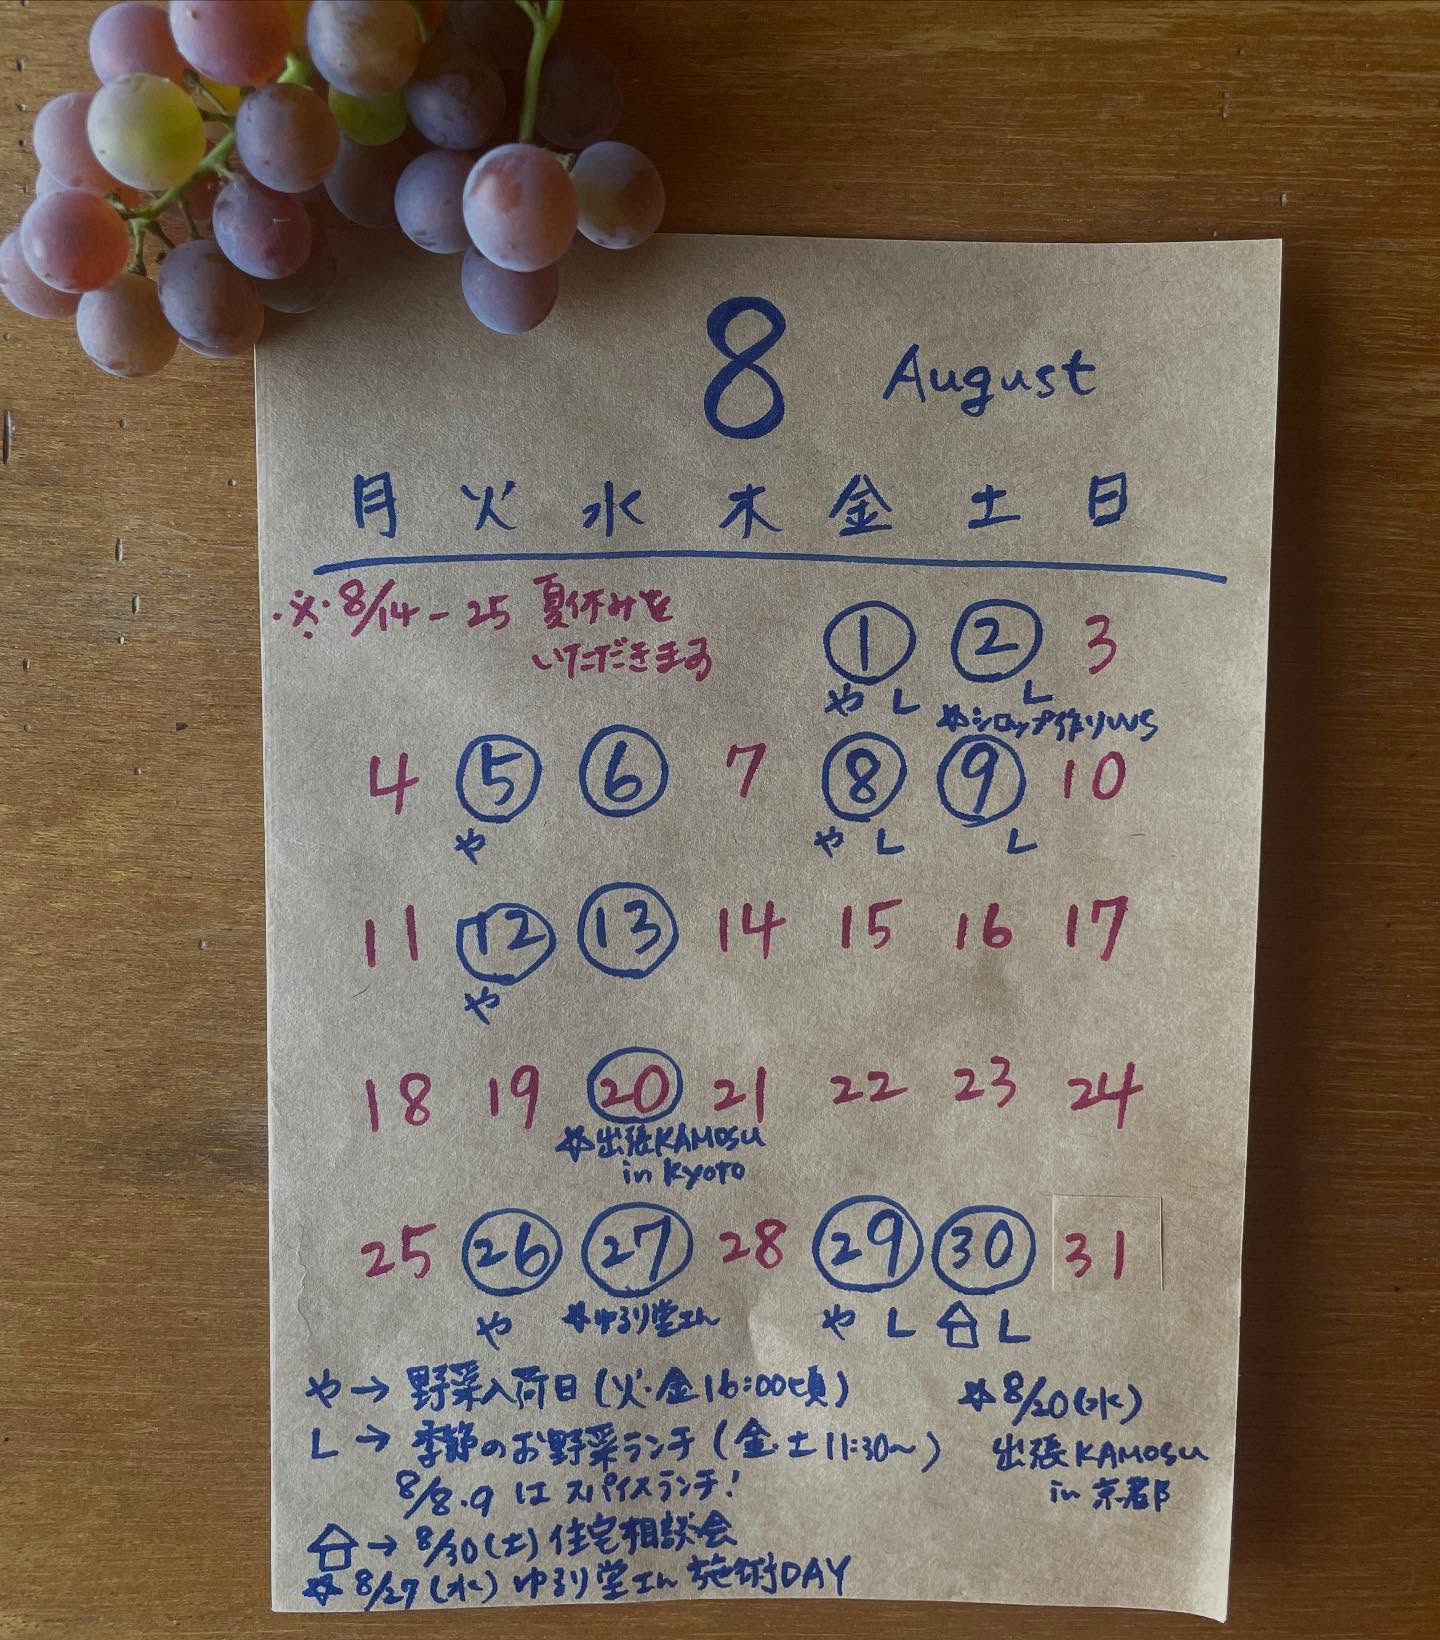 8 August
月 火 水 木 金 土 日
※8/14-25 夏休みを
いただきます
1 2 3
や L L
☆シロップ作りWS
4 5 6 7 8 9 10
や や L L
11 12 13 14 15 16 17
や
18 19 20 21 22 23 24
☆出張KAMOSU
in Kyoto
25 26 27 28 29 30 31
や ☆ゆるり堂さん や L L
や→ 野菜入荷日(火・金16:00頃)
L→ 季節のお野菜ランチ(金・土11:30〜)
8/8・9 はスパイスランチ!
→8/30(土)住宅相談会
☆8/27(水)ゆるり堂さん施術DAY
☆8/20(水)
出張KAMOSU
in 京都